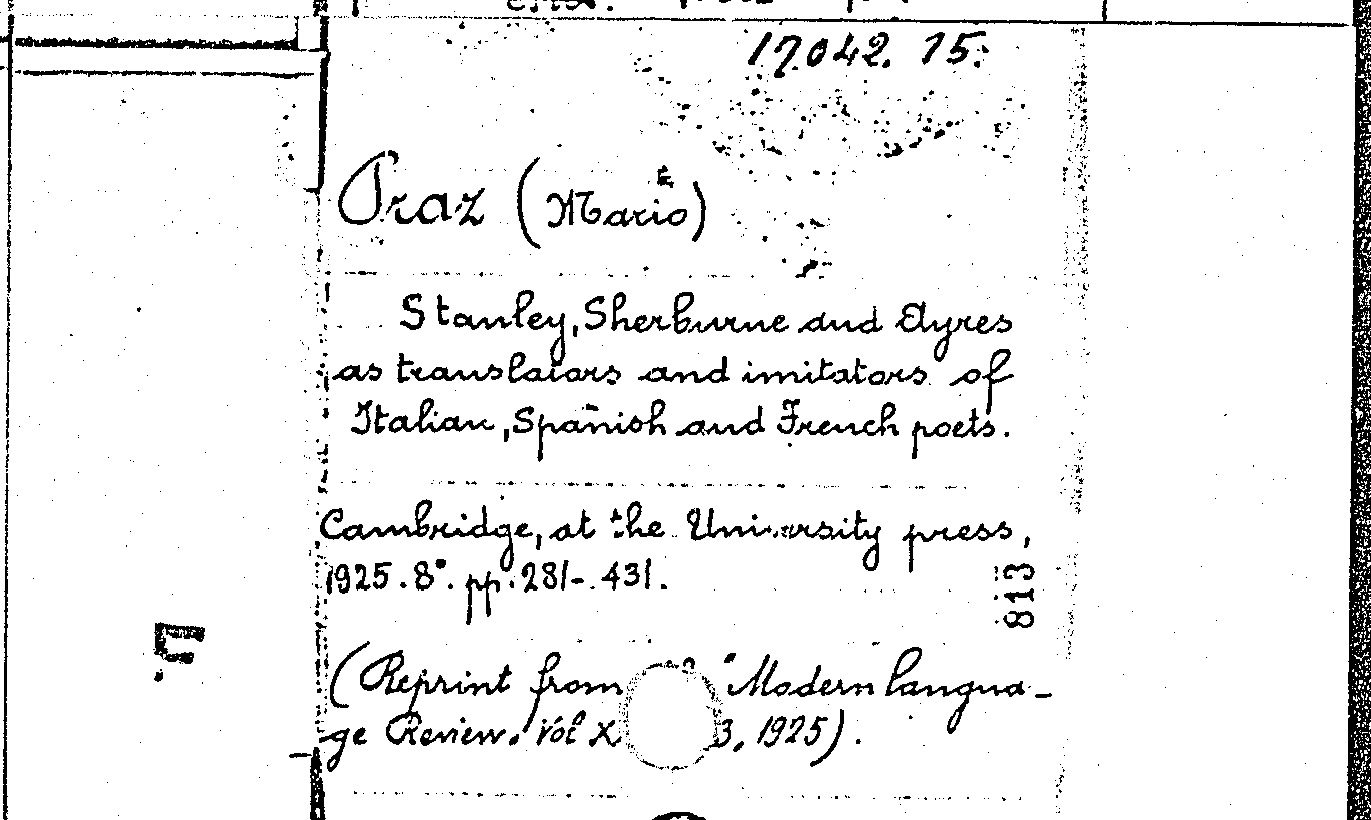 17.042. 15:
Praz (Mario)
Stanley, Sherburne and Ayres
as translators and imitators of
Italian, Spanish and French poets.
Cambridge, at the University press,
1925. 8°. pp. 281-. 431.
813
(Reprint from "Modern langua-
ge Review. Vol X 3, 1925).
F